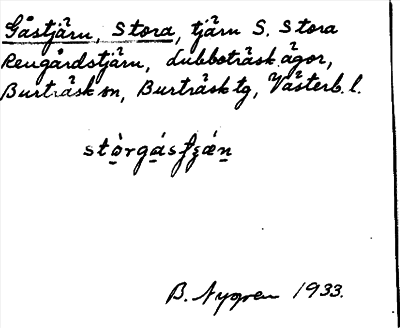 Gåstjärn, Stora, tjärn S. Stora
Rengårdstjärn, Lubboträsk ägor,
Burträsk sn, Burträsk tg, Västerb. l.
B. Nygren 1933.